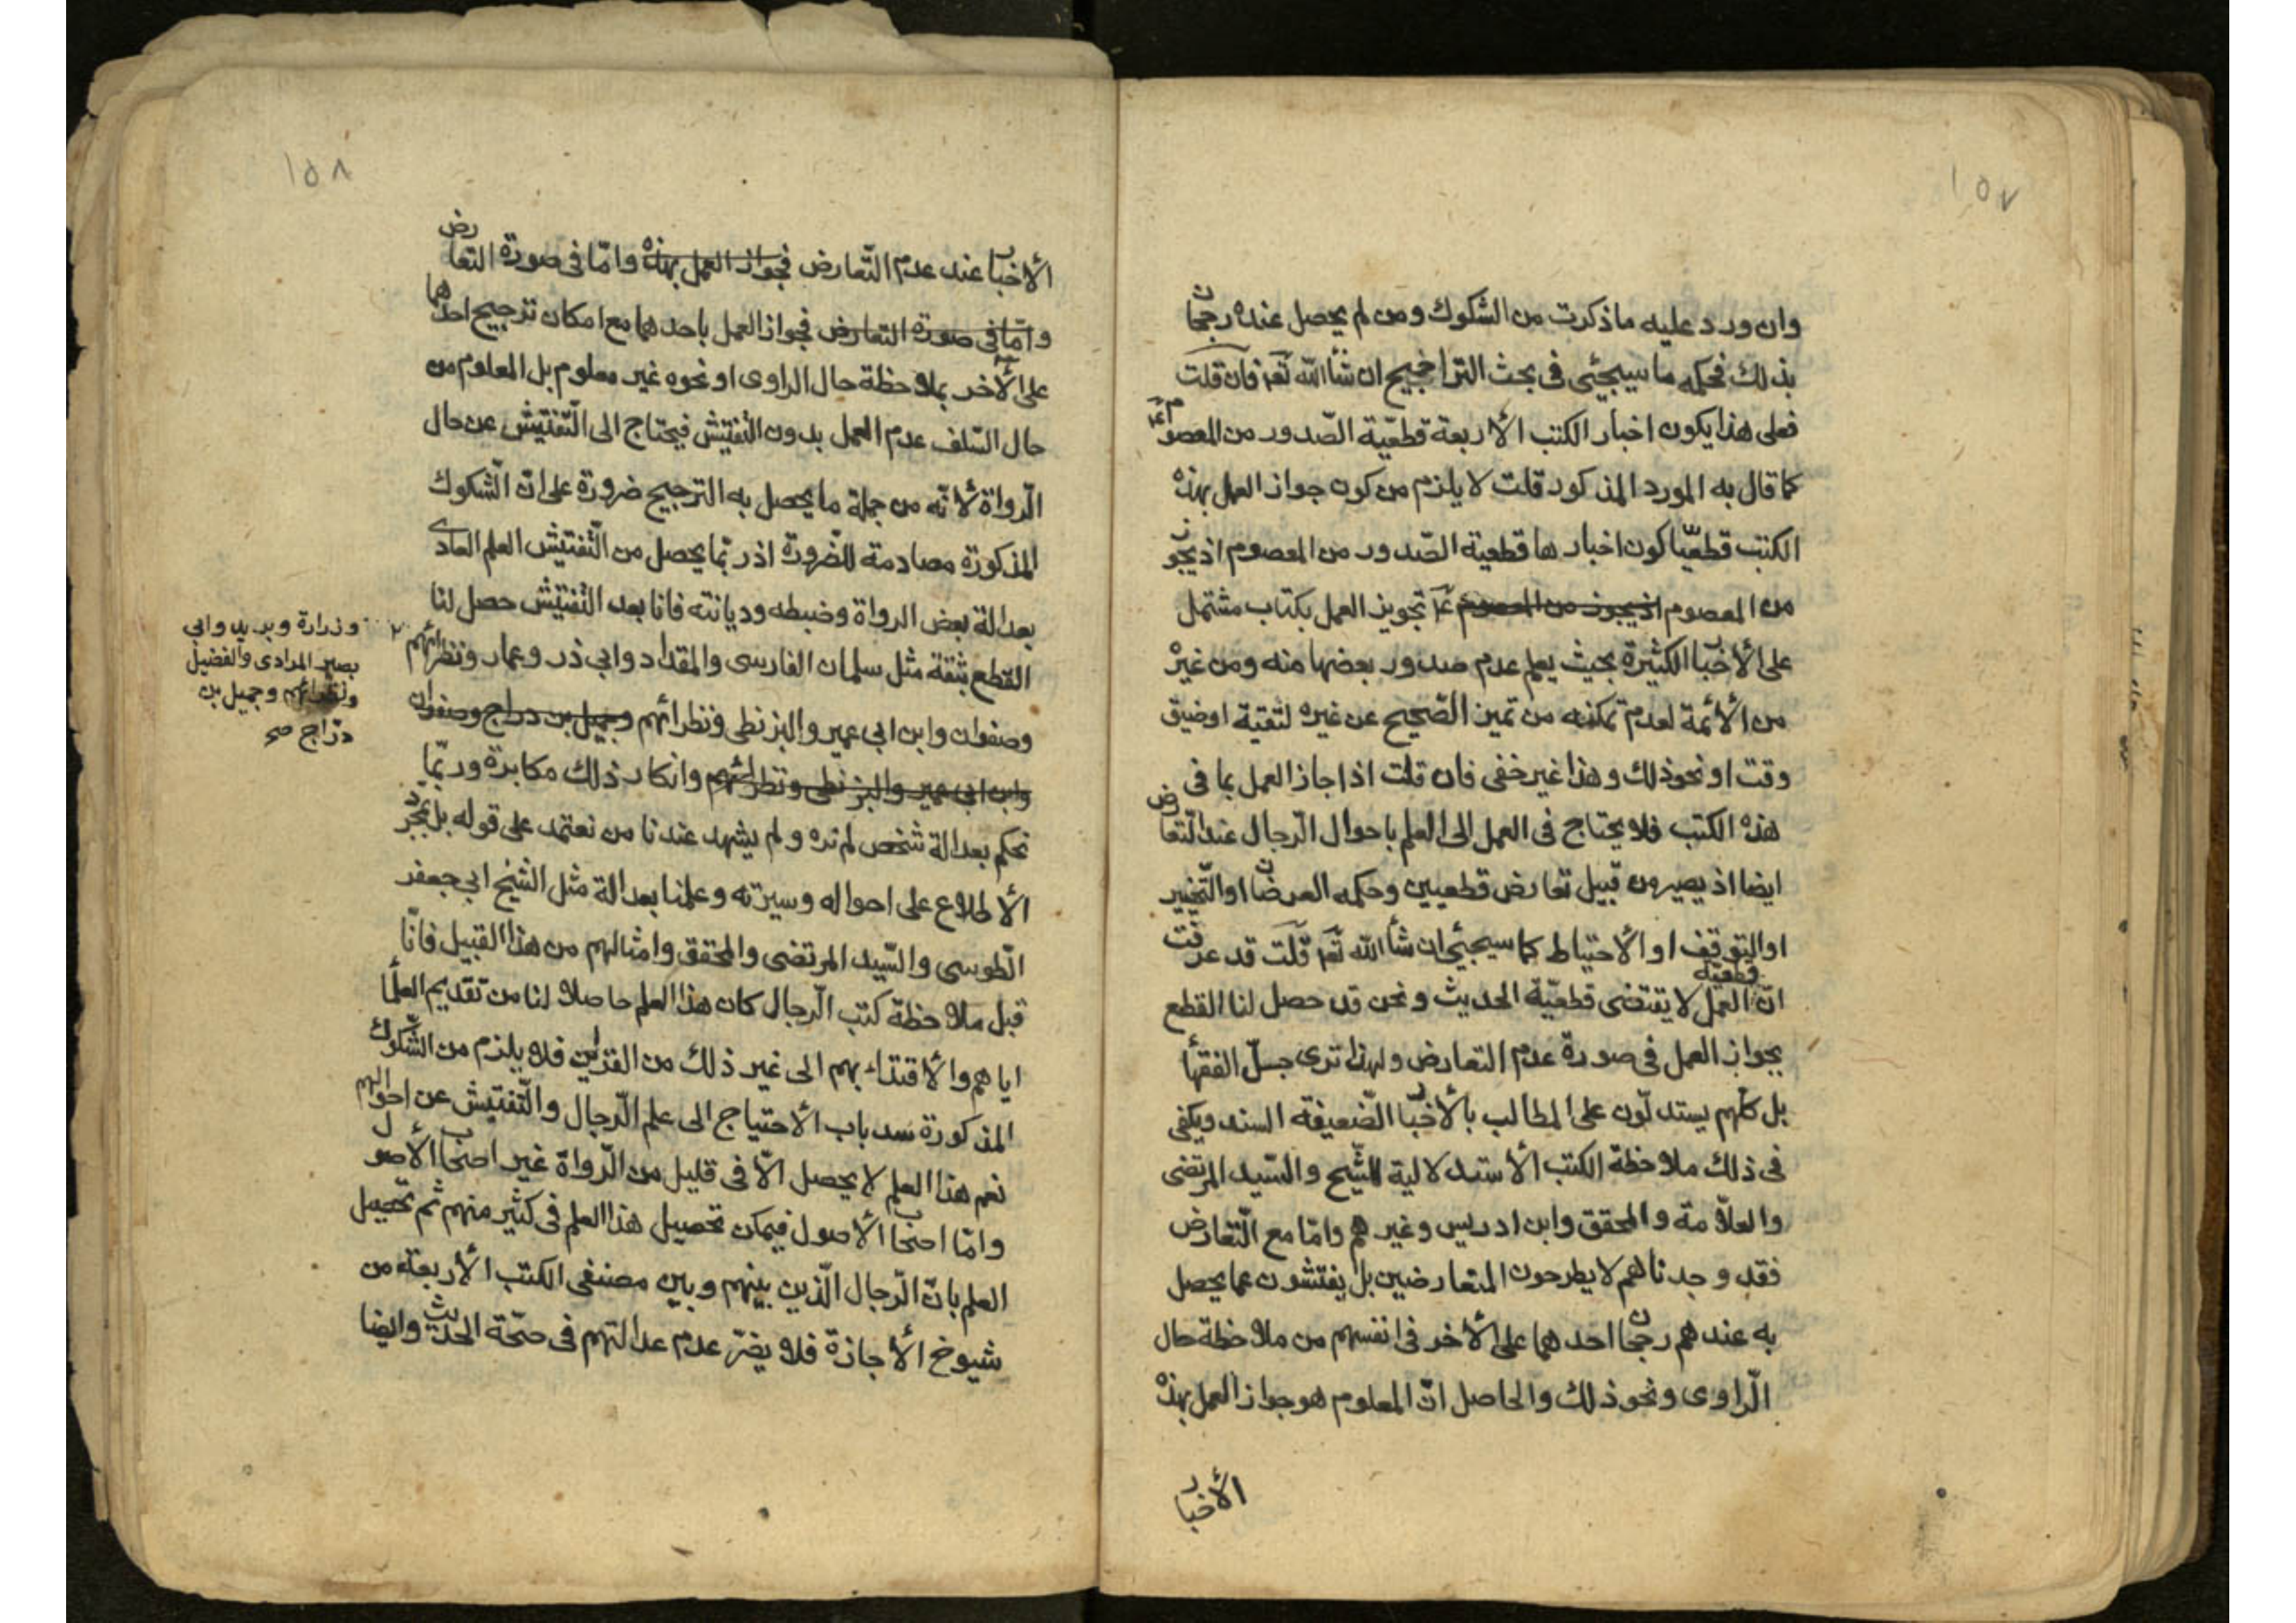 ١٥٧
وان ورد عليه ماذكرت من الشكوك ومن لم يحصل عنده رجحان
بذلك فحكمه ما سيجيئ فى بحث التراجيح ان شأ الله تعم فان قلت
فعلى هذا يكون اخبار الكتب الأربعة قطعيّة الصّدور من المعصوم عم
كما قال به المورد المذكور قلت لا يلزم من كون جواز العمل بهذه
الكتب قطعيّا كون اخبارها قطعية الصّدور من المعصوم اذ يجوز
من المعصوم اذ يجوز من المعصوم عم تجويز العمل بكتاب مشتمل
على الأخبار الكثيرة بحيث يعلم عدم صدور بعضها منه ومن غيره
من الأئمة لعدم تمكنه من تميز الصّحيح عن غيره لتقية او ضيق
وقت او نحو ذلك وهذا غير خفى فان قلت اذا جاز العمل بما فى
هذه الكتب فلا يحتاج فى العمل الى العلم باحوال الرّجال عند التّعارض
ايضا اذ يصير من قبيل تعارض قطعيين وحكمه العرضان او التّخيير
او التوقف او الأحتياط كما سيجيئ ان شأ الله تعم قلت قد عرفت
انّ قطعيّة العمل لا يقتضى قطعيّة الحديث ونحن قد حصل لنا القطع
بجواز العمل فى صورة عدم التعارض ولهذا ترى جلّ الفقهأ
بل كلّهم يستدلّون على المطالب بالأخبار الضّعيفة السند ويكفى
فى ذلك ملاحظة الكتب الأستدلالية للشّيخ والسّيد المرتضى
والعلّامة والمحقق وابن ادريس وغيرهم وامّا مع التّعارض
فقد وجدناهم لا يطرحون المتعارضين بل يفتشون عما يحصل
به عندهم رجحان احدهما على الأخر فى انفسهم من ملاحظة حال
الرّاوى ونحو ذلك والحاصل انّ المعلوم هو جواز العمل بهذه
الأخبار
١٥٨
الأخبار عند عدم التّعارض فجواز العمل بهذه وامّا فى صورة التعارض
وامّا فى صورة التعارض فجواز العمل باحدهما مع امكان ترجيح احدهما
على الأخر بملاحظة حال الراوى او نحوه غير معلوم بل المعلوم من
حال السّلف عدم العمل بدون التّفتيش فيحتاج الى التّفتيش عن حال
الرّواة لأنّه من جملة ما يحصل به الترجيح ضرورة على انّ الشّكوك
المذكورة مصادمة للضّرورة اذ ربّما يحصل من التّفتيش العلم العادى
بعدالة بعض الرواة وضبطه وديانته فانا بعد التّفتيش حصل لنا
القطع بثقة مثل سلمان الفارسى والمقداد وابي ذر وعمار ونظرائهم
وصفوان وابن ابي عمير والبزنطى ونظرائهم وجميل بن دراج وصفوان
وابن ابي عمير والبزنطى ونظرائهم وانكار ذلك مكابرة وربّما
نحكم بعدالة شخص لم نره ولم يشهد عندنا من نعتمد على قوله بل بمجرّد
الأطلاع على احواله وسيرته وعلمنا بعدالة مثل الشّيخ ابي جعفر
الطّوسى والسّيد المرتضى والمحقق وامثالهم من هذا القبيل فانّا
قبل ملاحظة كتب الرّجال كان هذا العلم حاصلا لنا من تقديم العلمأ
اياهم والأقتداء بهم الى غير ذلك من القرائن فلا يلزم من الشّكوك
المذكورة سد باب الأحتياج الى علم الرّجال والتّفتيش عن احوالهم
نعم هذا العلم لا يحصل الّا فى قليل من الرّواة غير اصحاب الأصول
وامّا اصحاب الأصول فيمكن تحصيل هذا العلم فى كثير منهم ثم تحصيل
العلم بانّ الرّجال الّذين بينهم وبين مصنفى الكتب الأربعة من
شيوخ الأجازة فلا يضرّ عدم عدالتهم فى صحّة الحديث وايضا
وزرارة وبريد وابي
بصير المرادى والفضيل
ونظرائهم وجميل بن
درّاج صح